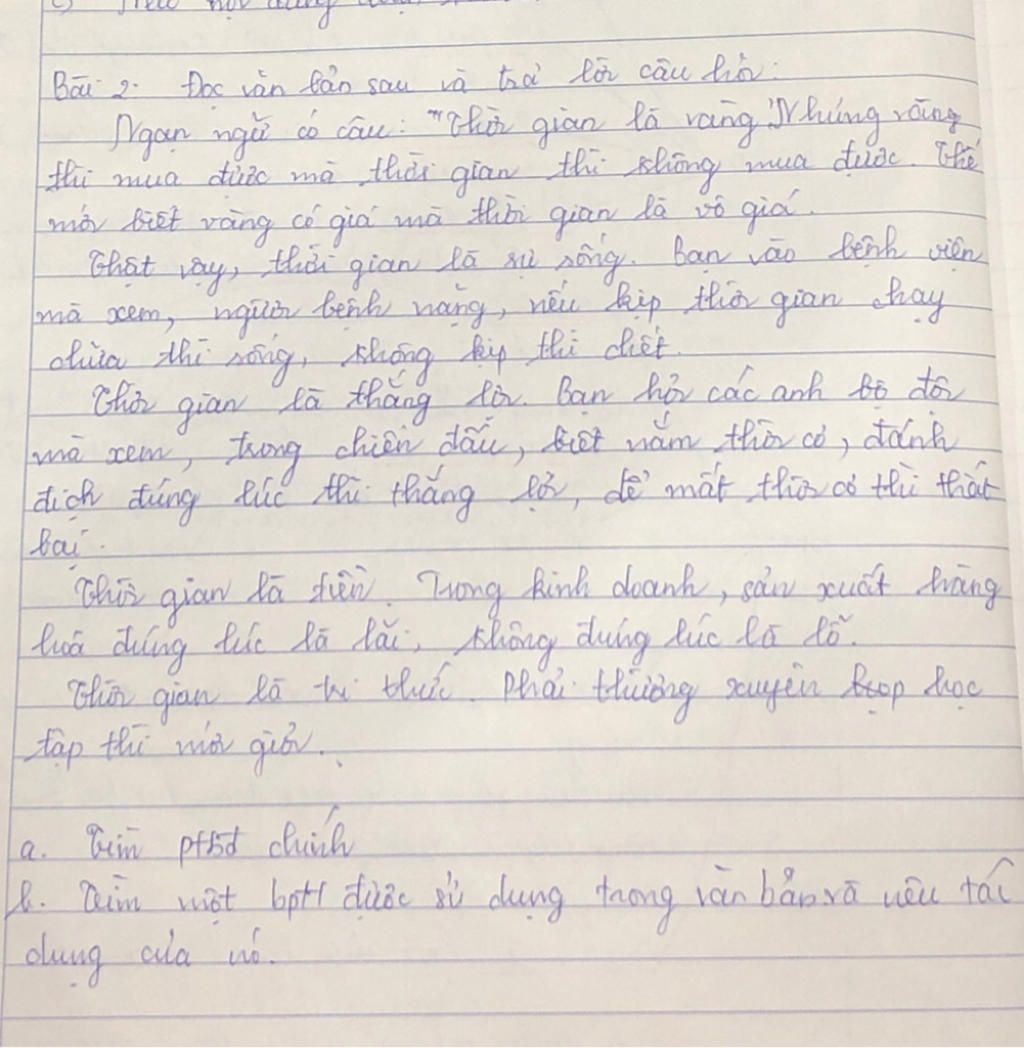 Bài 2. Đọc văn bản sau và trả lời câu hỏi:
Ngạn ngữ có câu: "Thời gian là vàng". Nhưng vàng
thì mua được mà thời gian thì không mua được. Thế
mới biết vàng có giá mà thời gian là vô giá.
Thật vậy, thời gian là sự sống. Bạn vào bệnh viện
mà xem, người bệnh nặng, nếu kịp thời gian chạy
chữa thì sống, không kịp thì chết.
Thời gian là thắng lợi. Bạn hỏi các anh bộ đội
mà xem, trong chiến đấu, biết nắm thời cơ, đánh
địch đúng lúc thì thắng lợi, để mất thời cơ thì thất
bại.
Thời gian là tiền. Trong kinh doanh, sản xuất hàng
hoá đúng lúc là lãi, không đúng lúc là lỗ.
Thời gian là tri thức. Phải thường xuyên học
tập thì mới giỏi.
a. Tìm ptbđ chính
b. Tìm một bptt được sử dụng trong văn bản và nêu tác
dụng của nó.